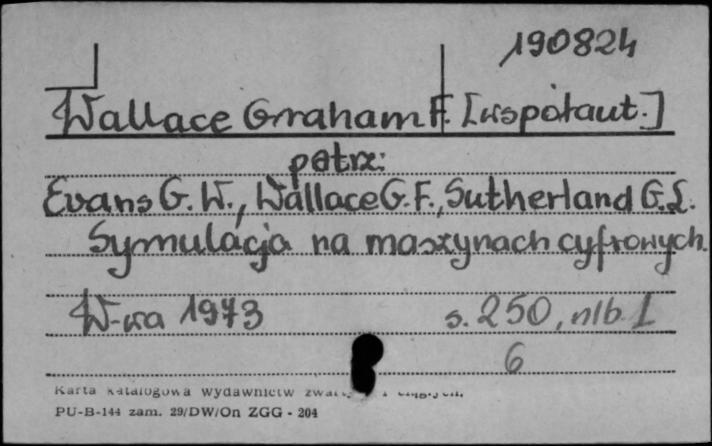 190824
Wallace Graham F. [współaut.]
patrz:
Evans G. W., Wallace G. F., Sutherland G. L.
Symulacja na maszynach cyfrowych.
W-wa 1973 s. 250, nlb. 1
6
Karta katalogowa wydawnictw
PU-B-144 zam. 29/DW/On ZGG - 204